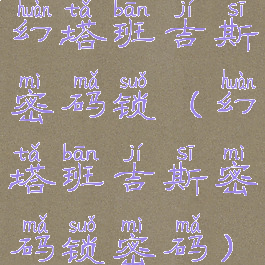 huàn tǎ bān jí sī
幻塔班吉斯
mì mǎ suǒ huàn
密码锁（幻
tǎ bān jí sī mì
塔班吉斯密
mǎ suǒ mì mǎ
码锁密码）